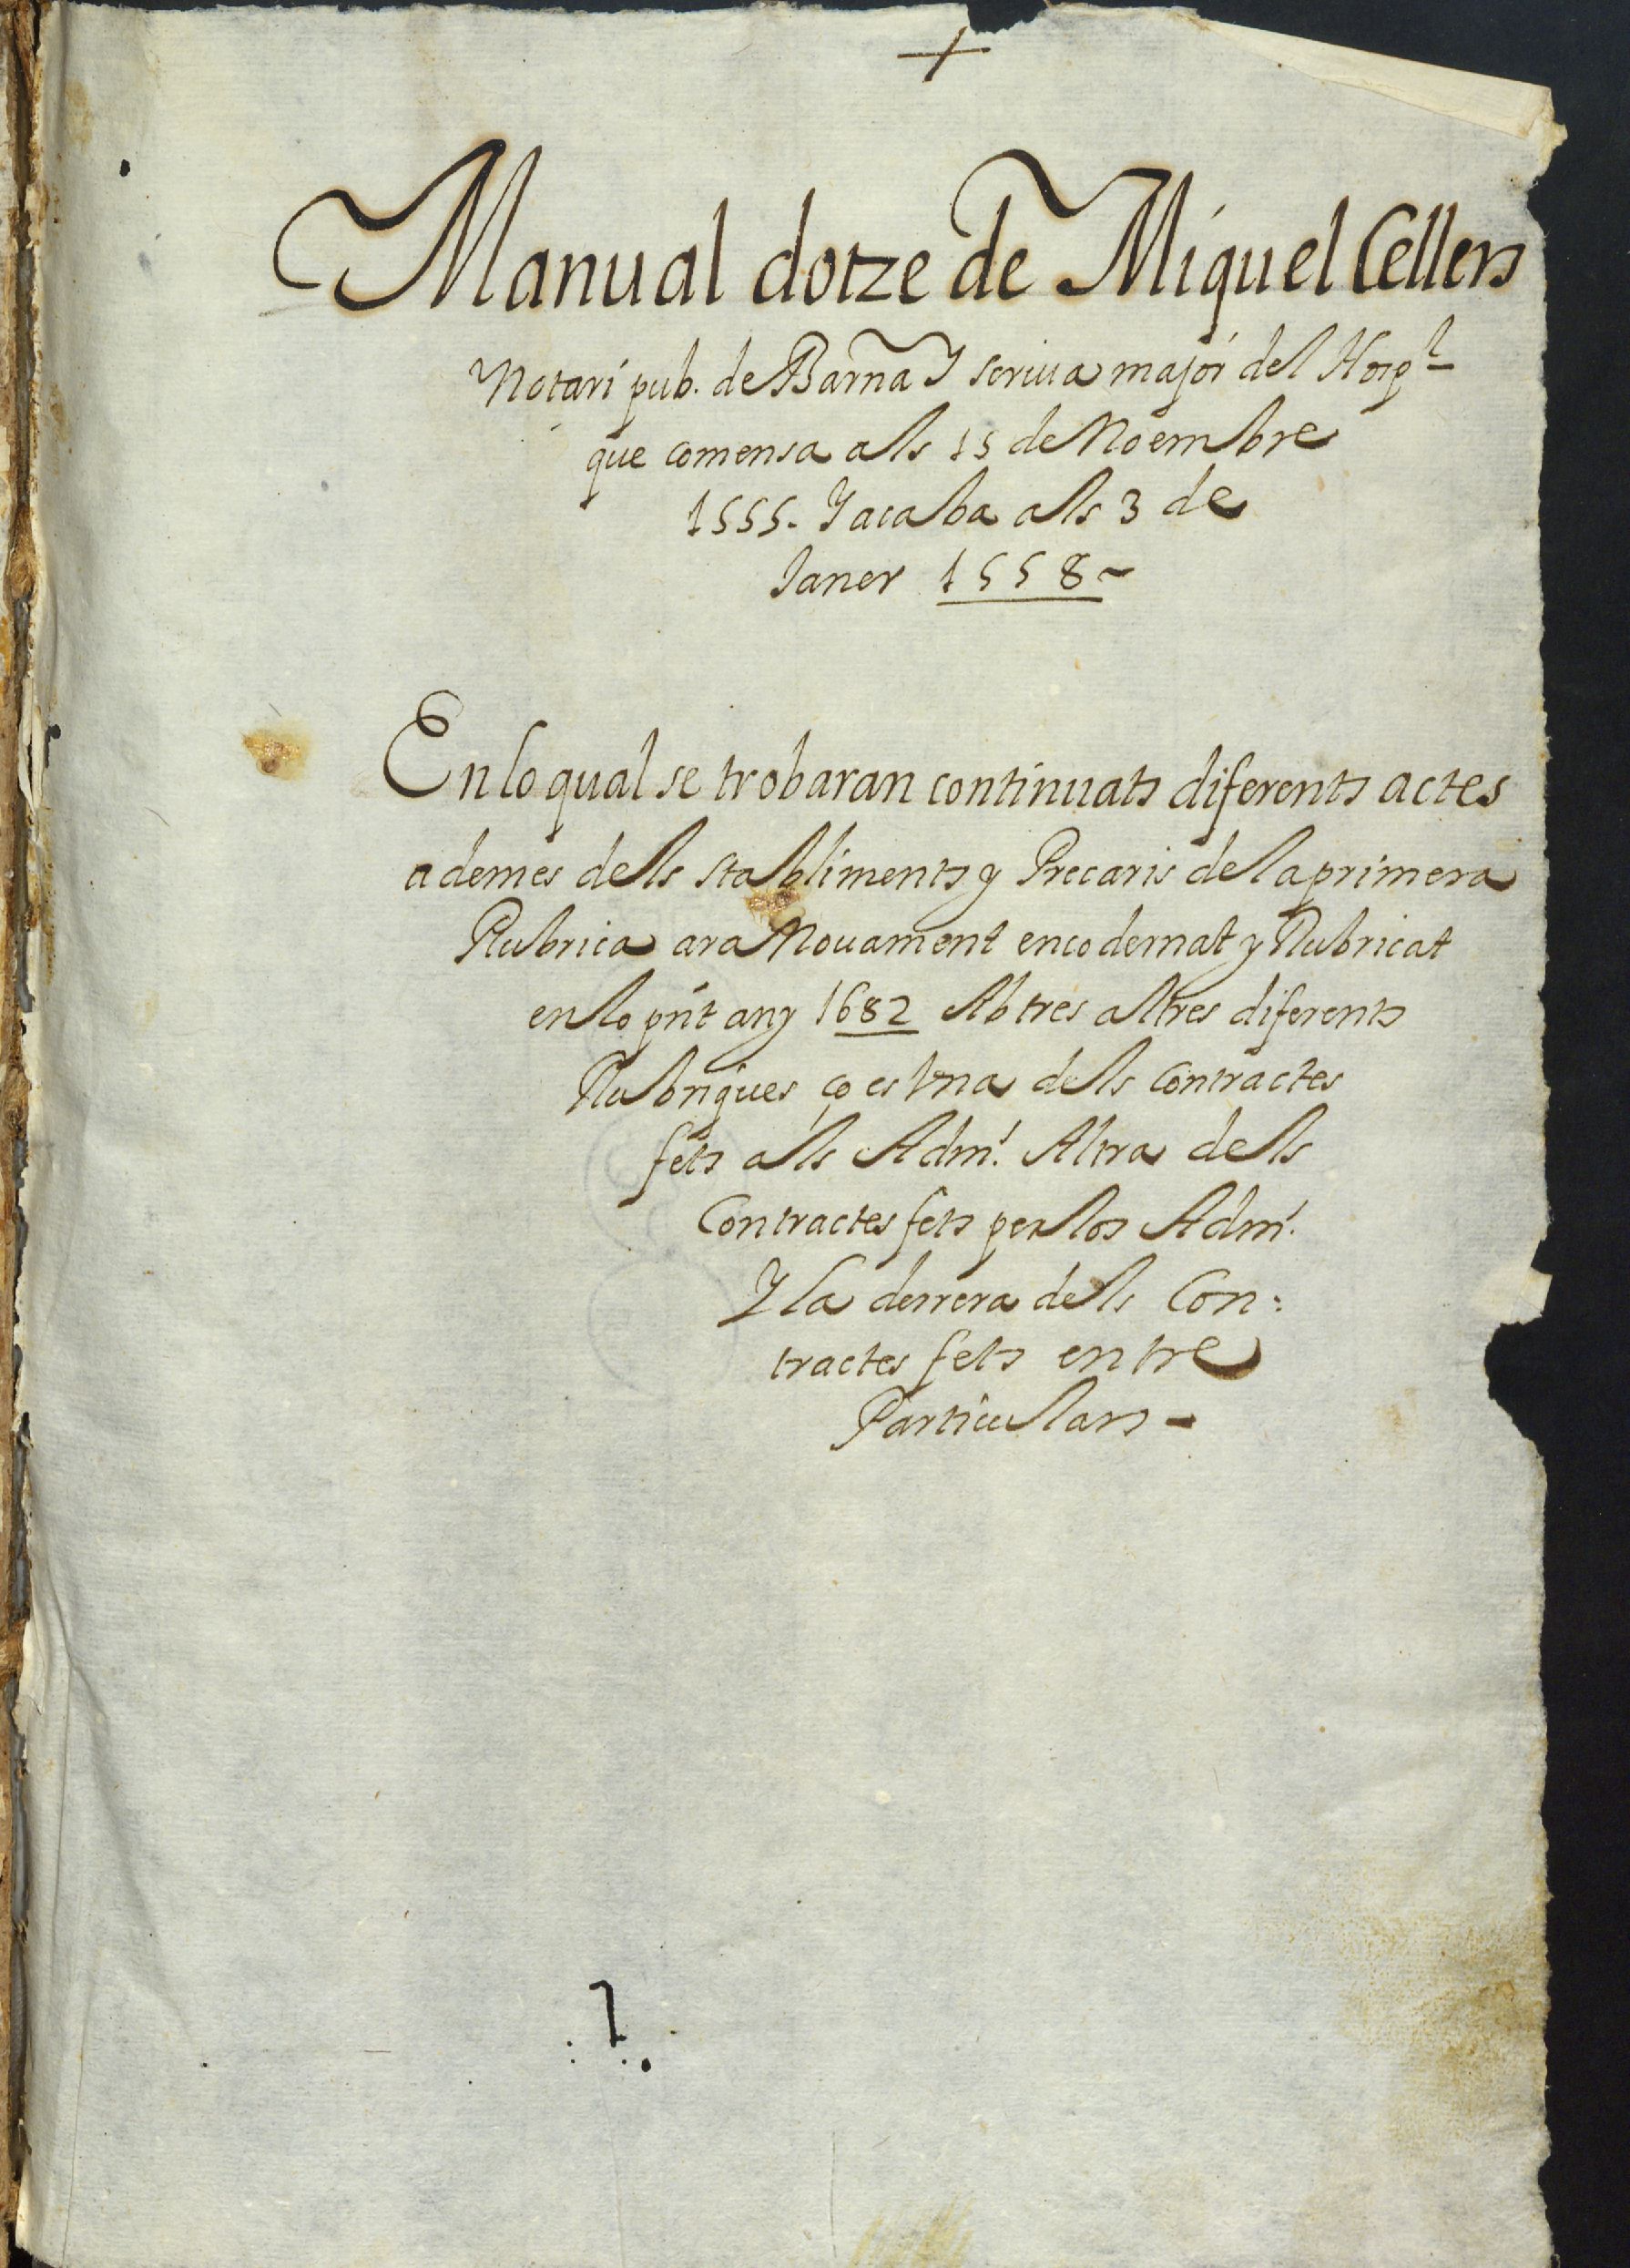 +
Manual dotze de Miquel Cellers
Notari pub. de Barna Y scriua major del Hospl
que comensa als 15 de Noembre
1555. Y acaba als 3 de
Janer 1558~
En lo qual se trobaran continuats diferents actes
a demes dels stabliments y Precaris de la primera
Rubrica ara Nouament encodernat y Rubricat
en lo pnt any 1682 Ab tres altres diferents
Rubriques ço es Vna dels Contractes
fets als Adm.rs Altra dels
Contractes fets per los Adm.rs
Y la derrera dels Con:
tractes fets entre
Particulars -